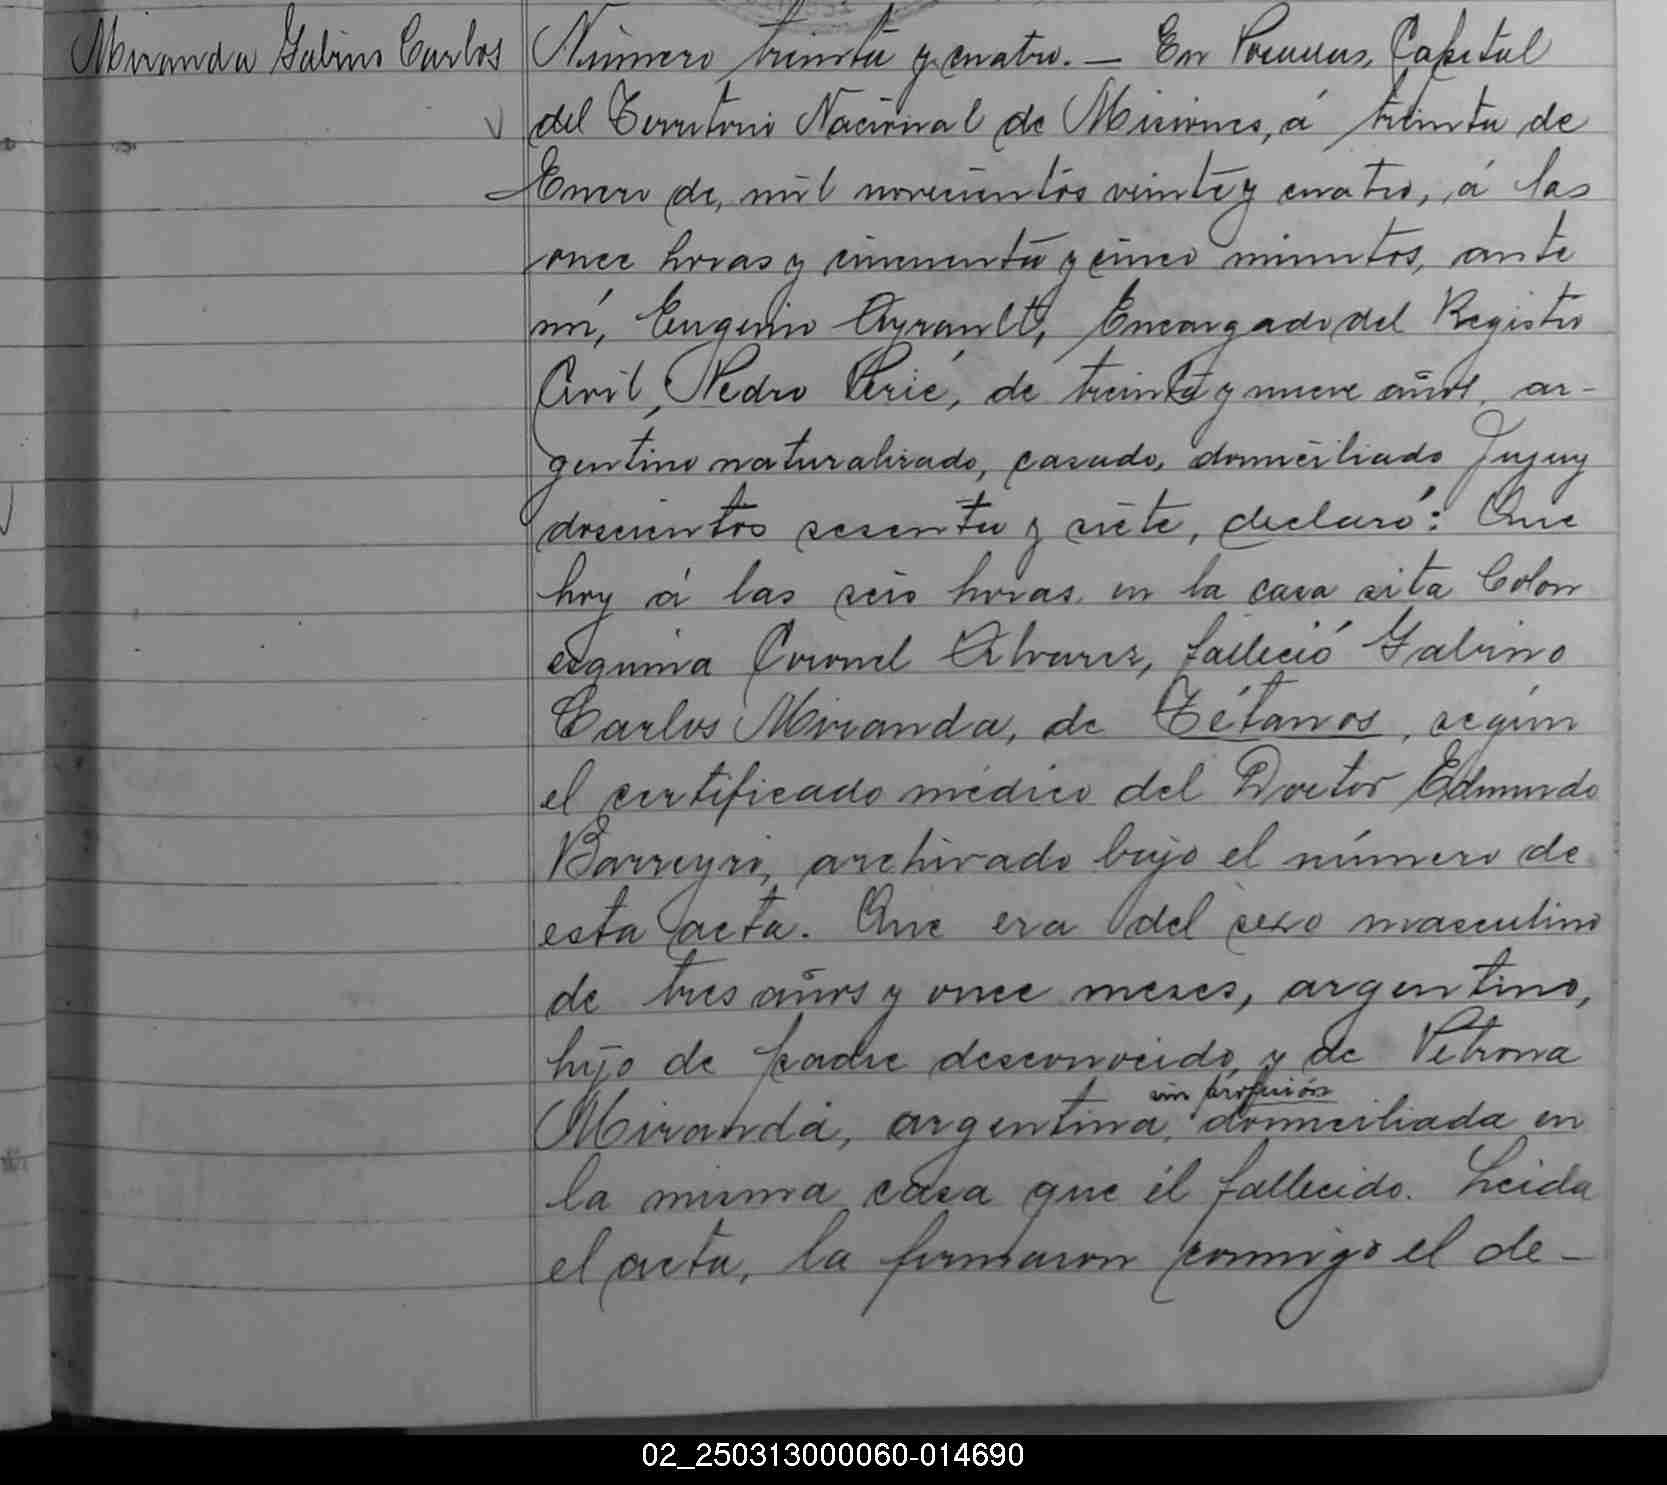 Miranda Gabino Carlos
Número treinta y cuatro. — En Posadas, Capital
del Territorio Nacional de Misiones, á treinta de
Enero de, mil novecientos veinte y cuatro, á las
once horas y cincuenta y cinco minutos, ante
mí, Eugenio Ayrault, Encargado del Registro
Civil, Pedro Perié, de treinta y nueve años, ar-
gentino naturalizado, casado, domiciliado Jujuy
doscientos sesenta y siete, declaró: Que
hoy á las seis horas en la casa sita Colon
esquina Coronel Alvarez, falleció Gabino
Carlos Miranda, de Tétanos, según
el certificado médico del Doctor Edmundo
Barreyro, archivado bajo el número de
esta acta. Que era del sexo masculino
de tres años y once meses, argentino,
hijo de padre desconocido y de Petrona
sin profesión
Miranda, argentina, domiciliada en
la misma casa que él fallecido. Leida
el acta, la firmaron conmigo el de-
02_250313000060-014690